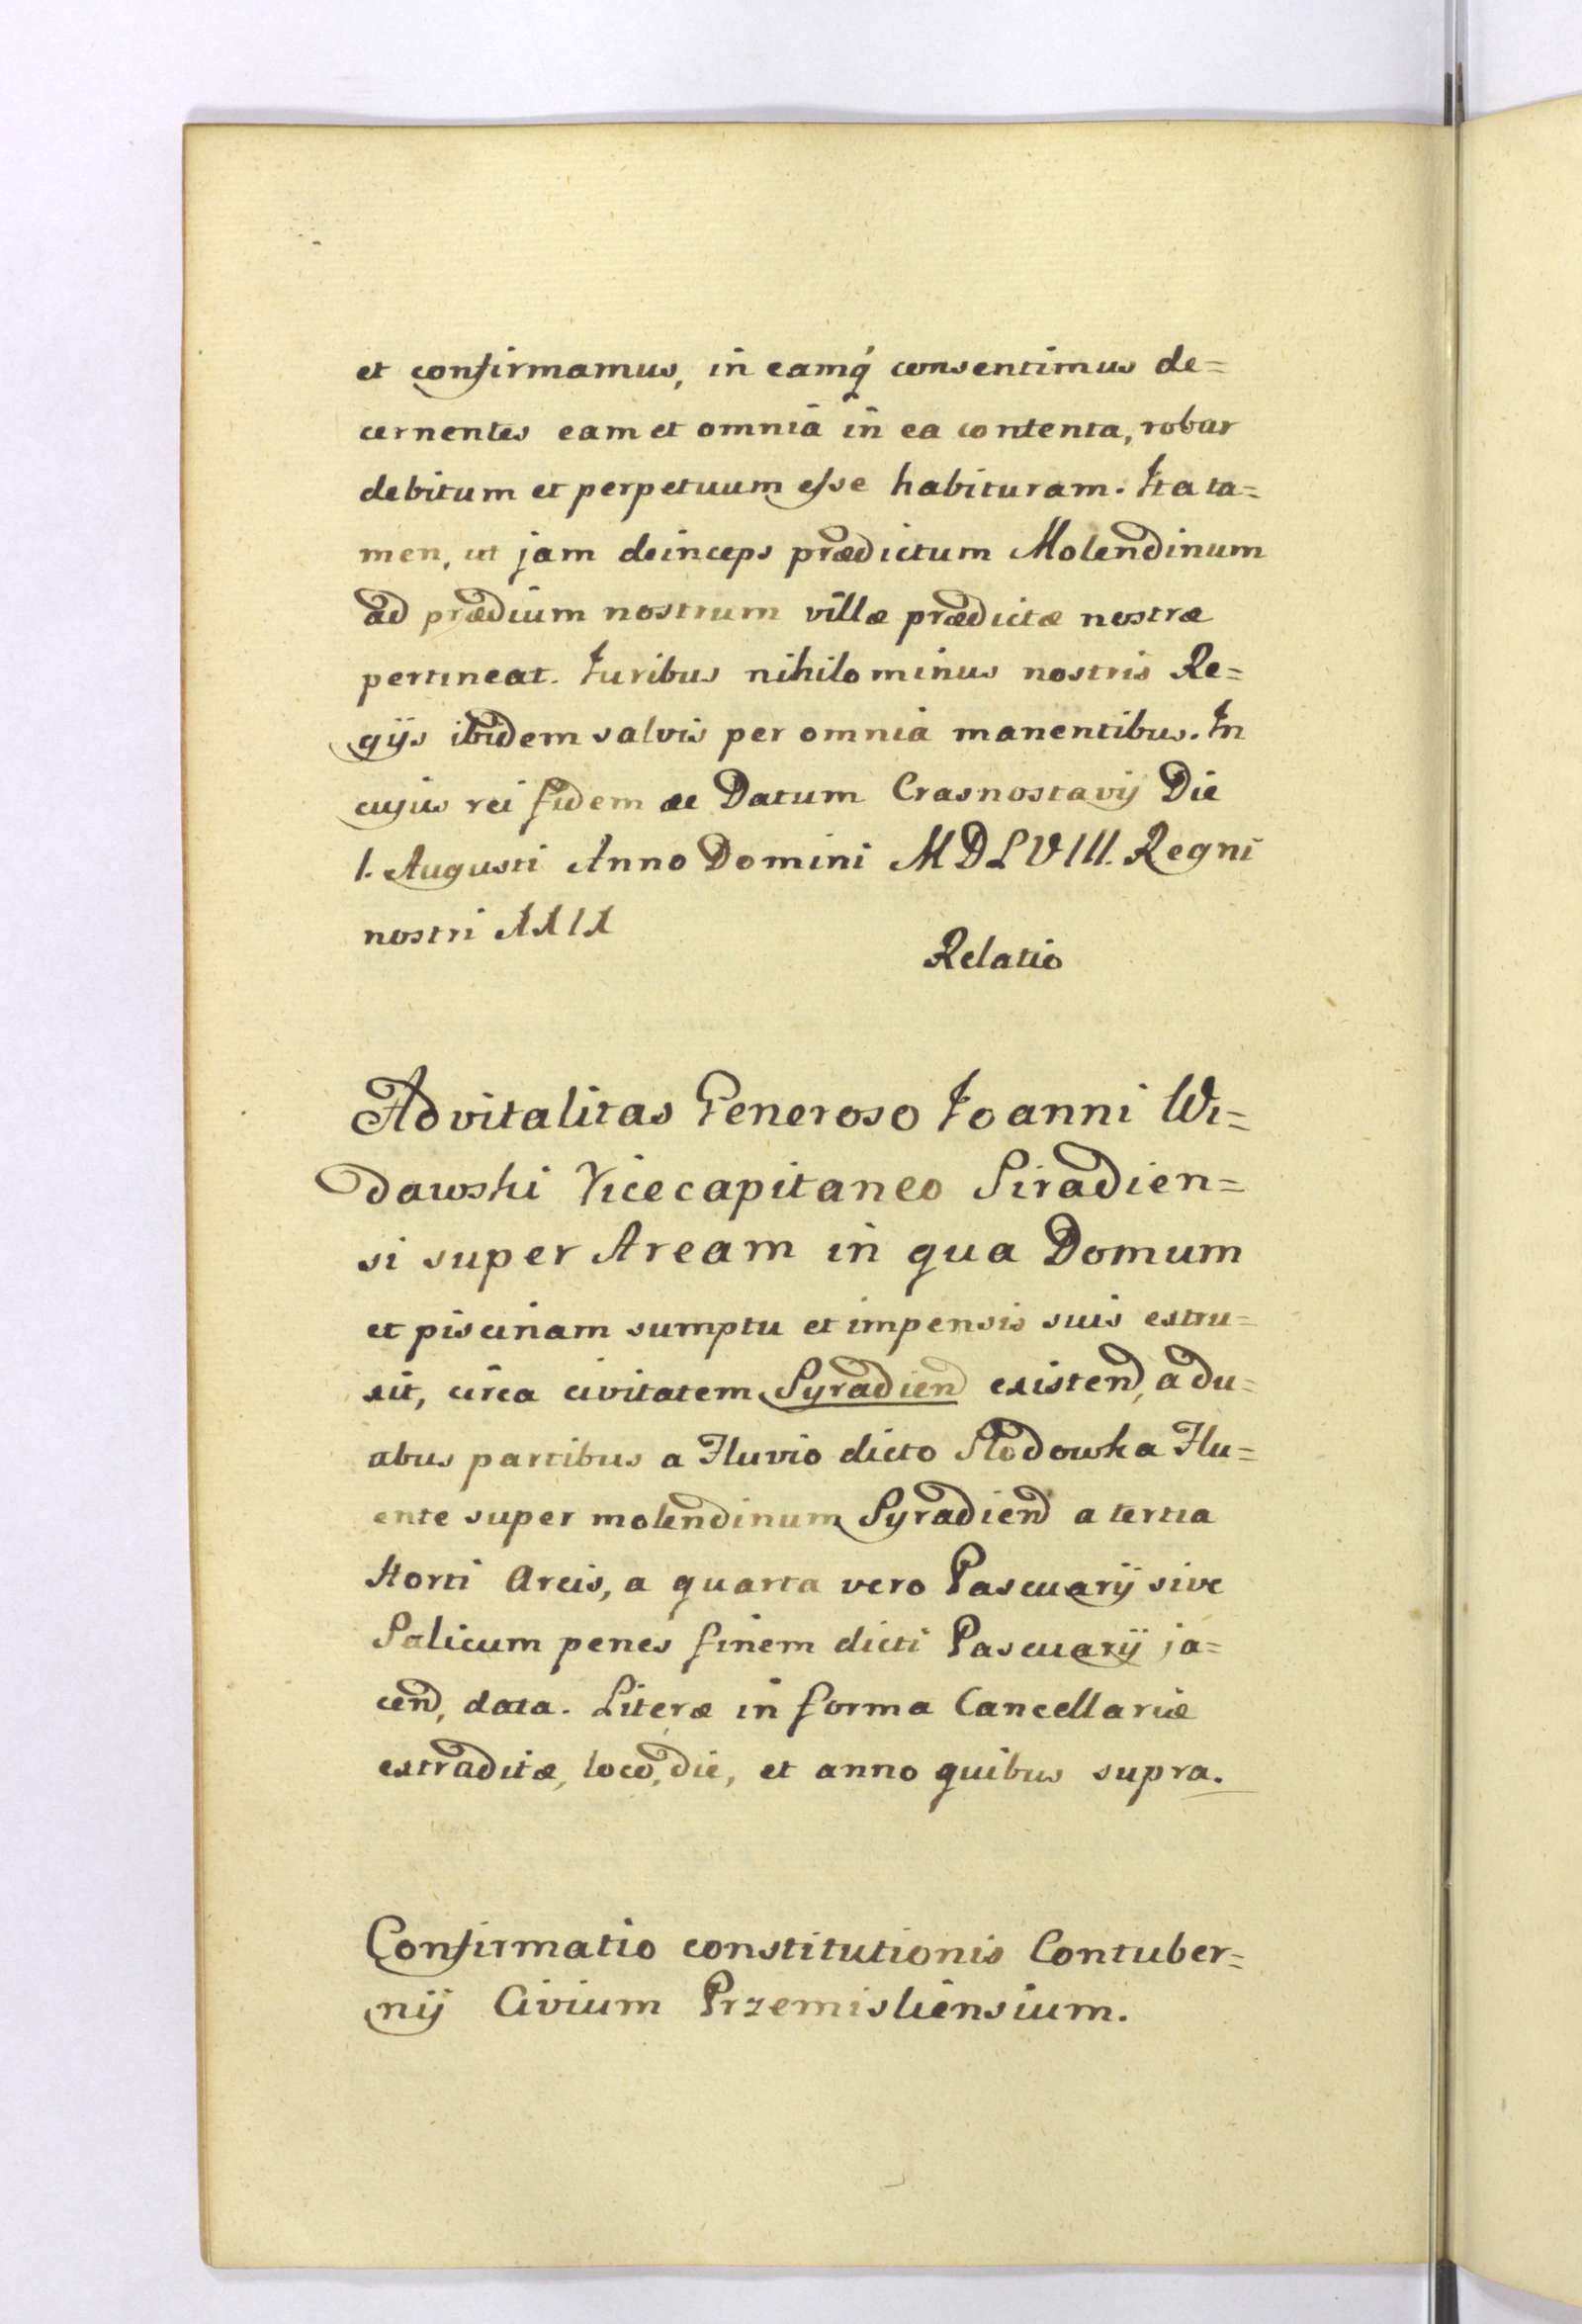 et confirmamus, in eamq́ consentimus de=
cernentes eam et omnia in ea contenta, robur
debitum et perpetuum esse habituram. Ita ta=
men, ut jam deinceps prædictum Molendinum
ad prædium nostrum villæ prædictæ nostræ
pertineat. Juribus nihilominus nostris Re=
gijs ibidem salvis per omnia manentibus. In
cujus rei fidem &c Datum Crasnostavij Die
1. Augusti Anno Domini MDLVIII. Regni
nostri XXIX
Relatio
Advitalitas Generoso Joanni Wi=
dawski Vicecapitaneo Siradien=
si super Aream in qua Domum
et piscinam sumptu et impensis suis extru=
xit, circa civitatem Syradien existend, a du=
abus partibus a Fluvio dicto Slodowka Flu=
ente super molendinum Syradiend a tertia
Horti Arcis, a quarta vero Pascuarij sive
Salicum penes finem dicti Pascuarij ja=
cend, data. Literæ in forma Cancellariæ
extraditæ, loco, die, et anno quibus supra.
Confirmatio constitutionis Contuber=
nij Civium Przemisliensium.